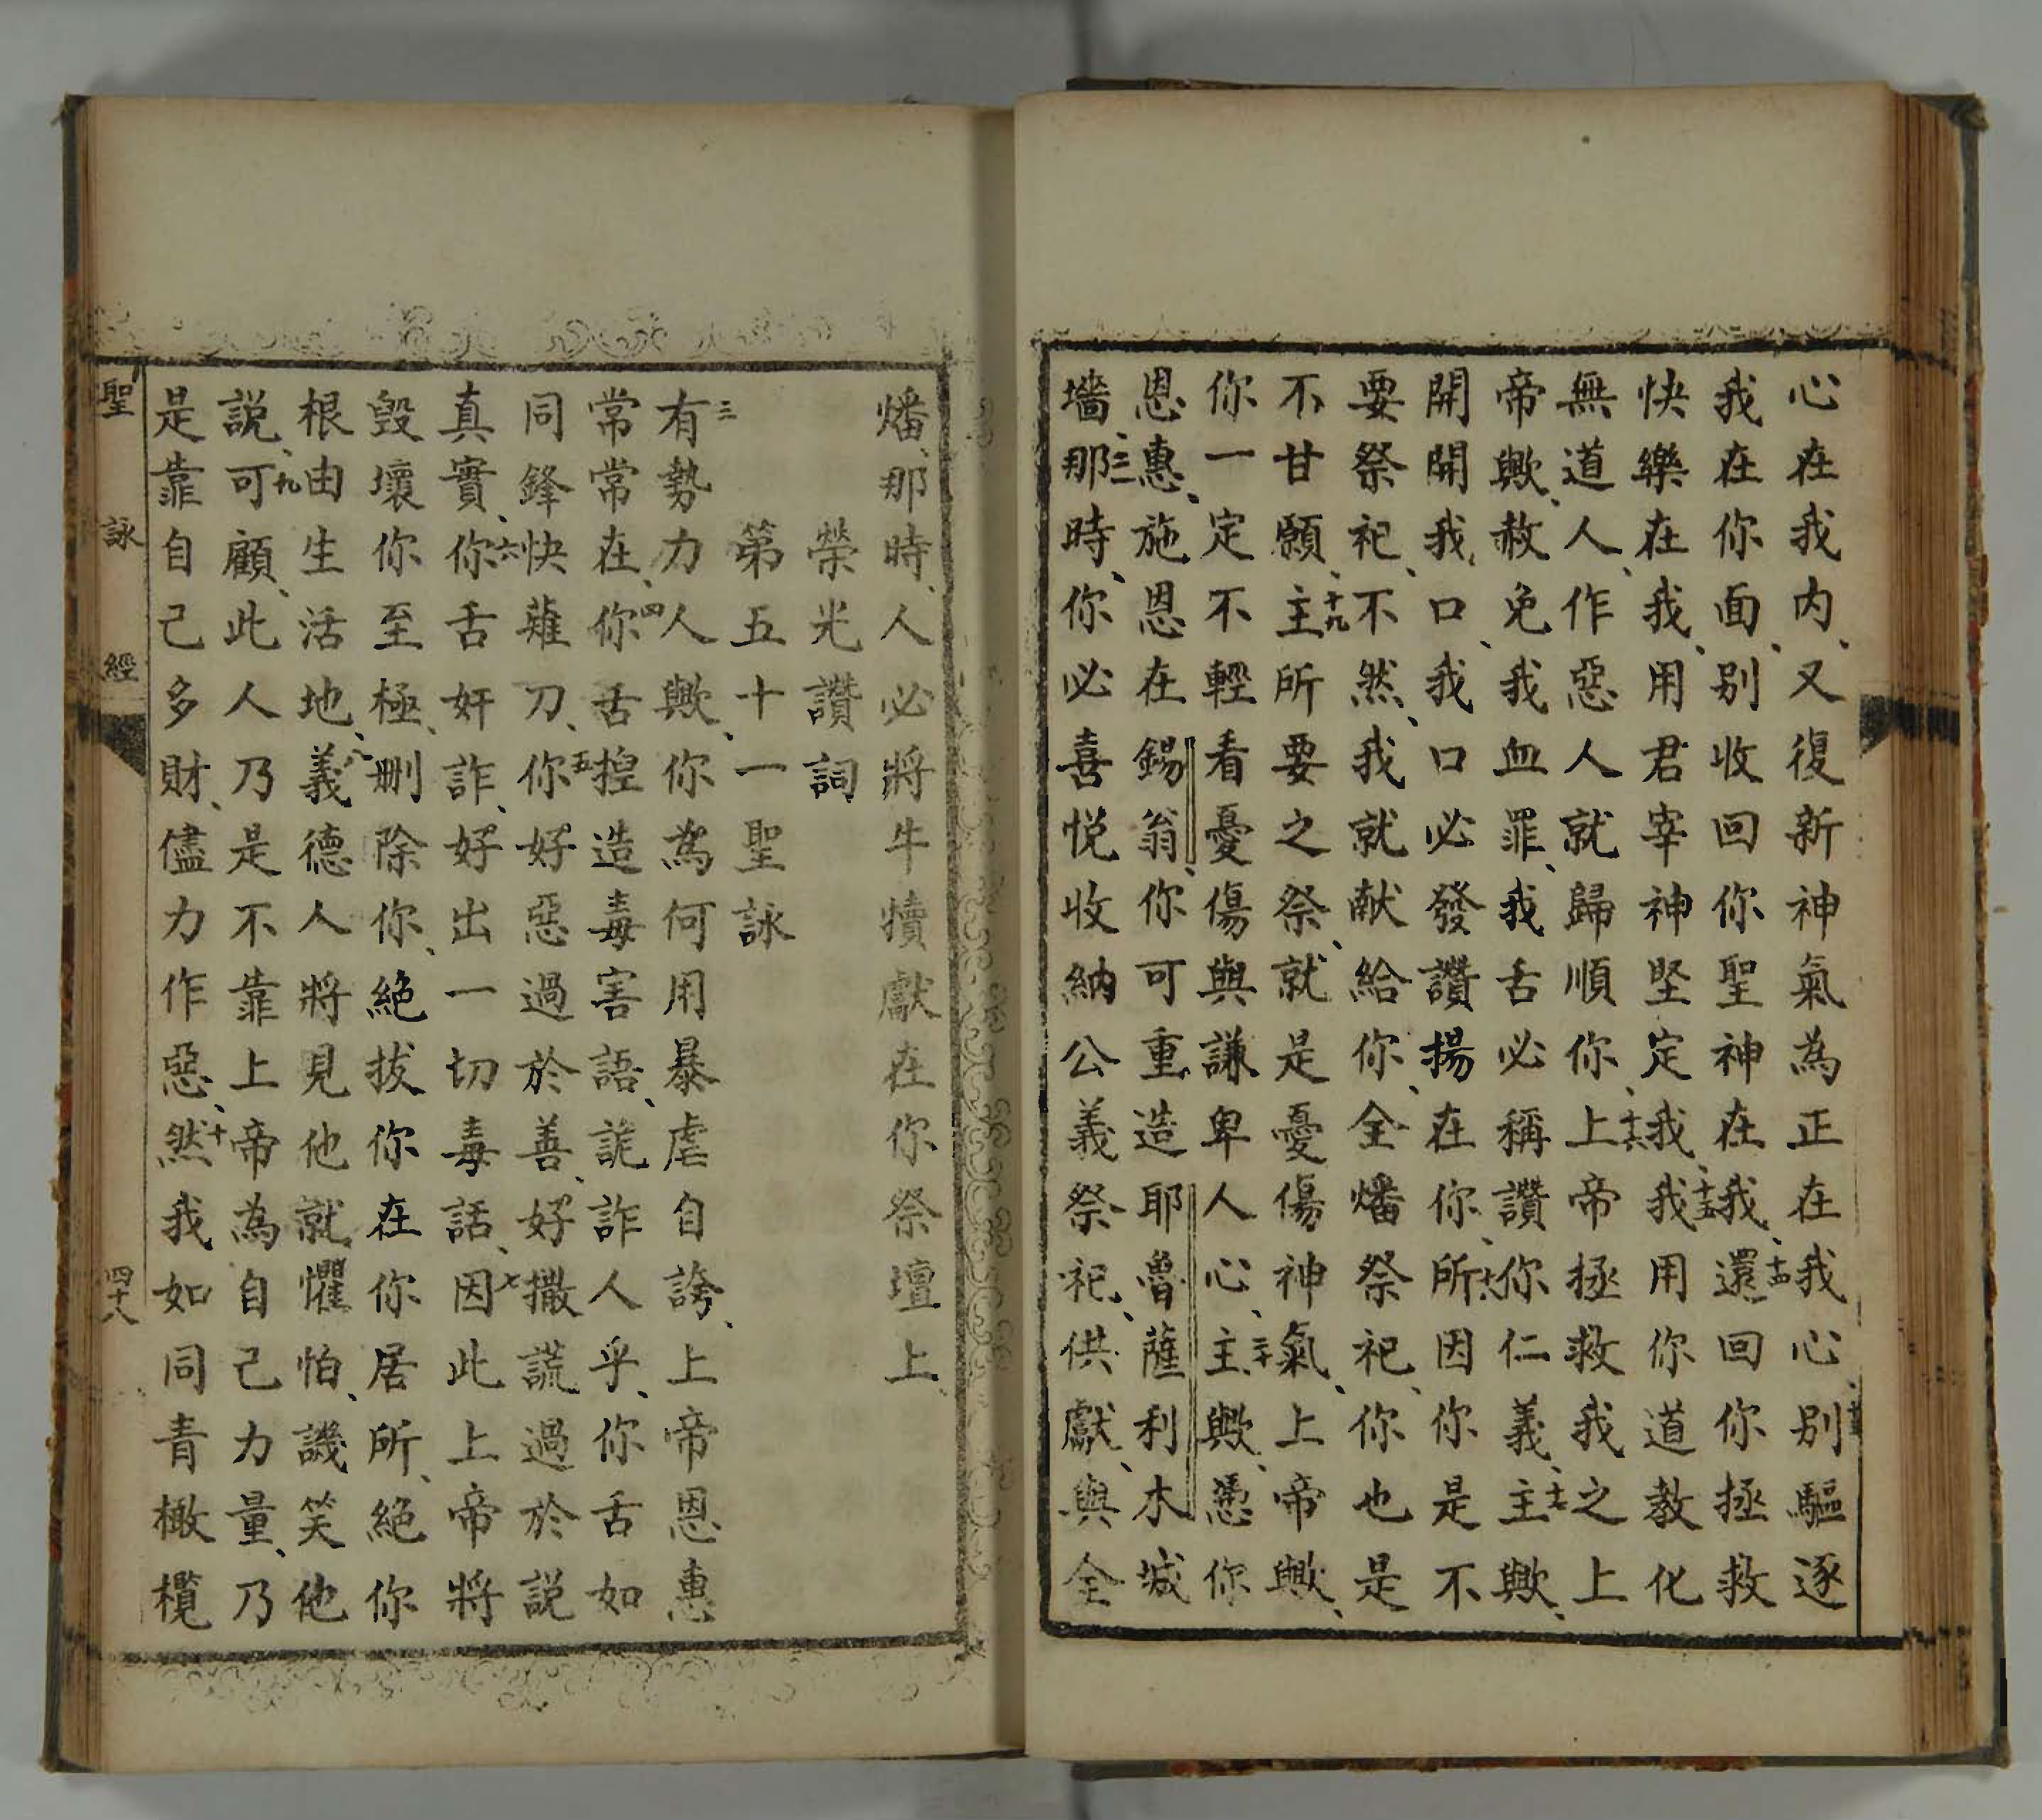 心在我内、又復新神氣為正在我心、十三別驅逐
我在你面、别收回你聖神在我、十四還回你拯救
快樂在我、用君宰神堅定我、十五我用你道教化
無道人、作惡人就歸順你、十六上帝拯救我之上
帝歟、赦免我血罪、我舌必稱讚你仁義、十七主歟、
開開我口、我口必發讚揚在你、十八所因你是不
要祭祀、不然、我就献給你、全燔祭祀、你也是
不甘願、十九主所要之祭、就是憂傷神氣、上帝歟、
你一定不輕看憂傷與謙卑人心、二十主歟、憑你
恩惠、施恩在錫翁、你可重造耶魯薩利木城
墻、二一那時、你必喜悦收納公義祭祀、供獻、與全
燔、那時、人必將牛犢獻在你祭壇上、
榮光讚詞
第五十一聖詠
三有勢力人歟、你為何用暴虐自誇、上帝恩惠
常常在、四你舌揑造毒害語、詭詐人乎、你舌如
同鋒快薙刀、五你好惡過於善、好撒謊過於説
真實、六你舌奸詐、好出一切毒話、七因此上帝將
毀壞你至極、删除你、絶拔你在你居所、絶你
根由生活地、八義德人將見他就懼怕、譏笑他
説、九可顧、此人乃是不靠上帝為自己力量、乃
是靠自己多財、儘力作惡、十然我如同青橄欖
聖詠經
四十八